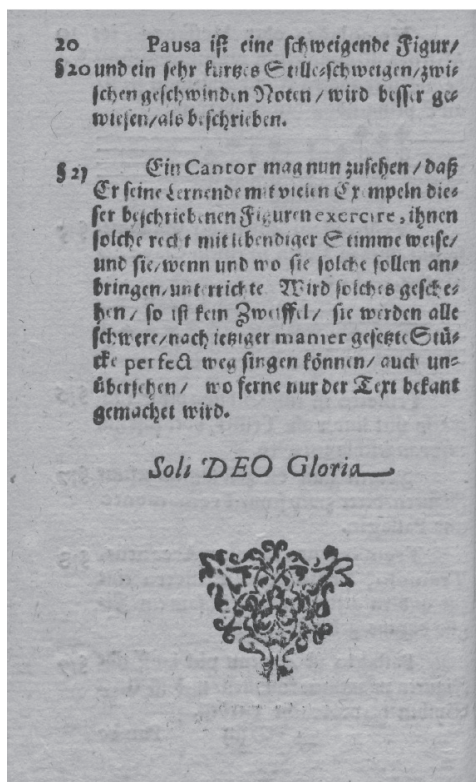 20 Pausa ist eine schweigende Figur/
§20 und ein sehr kurtzes Stilleschweigen/zwi-
schen geschwinden Noten/wird besser ge-
wiesen/als beschrieben.
§21 Ein Cantor mag nun zusehen/daß
Er seine Lernende mit vielen Exempeln die-
ser beschriebenen Figuren exercire, ihnen
solche recht mit lebendiger Stimme weise/
und sie/wenn und wo sie solche sollen an-
bringen/unterrichte. Wird solches gesche-
hen/ so ist kein Zweiffel/ sie werden alle
schwere/nach ietziger manier gesetzte Stü-
cke perfect weg singen können/ auch un-
übersehen/ wo ferne nur der Text bekant
gemachet wird.
Soli DEO Gloria